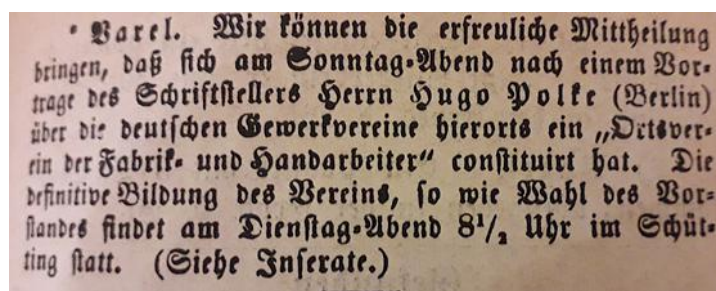 * Varel. Wir können die erfreuliche Mittheilung
bringen, daß sich am Sonntag-Abend nach einem Vor-
trage des Schriftstellers Herrn Hugo Polke (Berlin)
über die deutschen Gewerkvereine hierorts ein „Ortsver-
ein der Fabrik- und Handarbeiter“ constituirt hat. Die
definitive Bildung des Vereins, so wie Wahl des Vor-
standes findet am Dienstag-Abend 8½ Uhr im Schüt-
ting statt. (Siehe Inserate.)